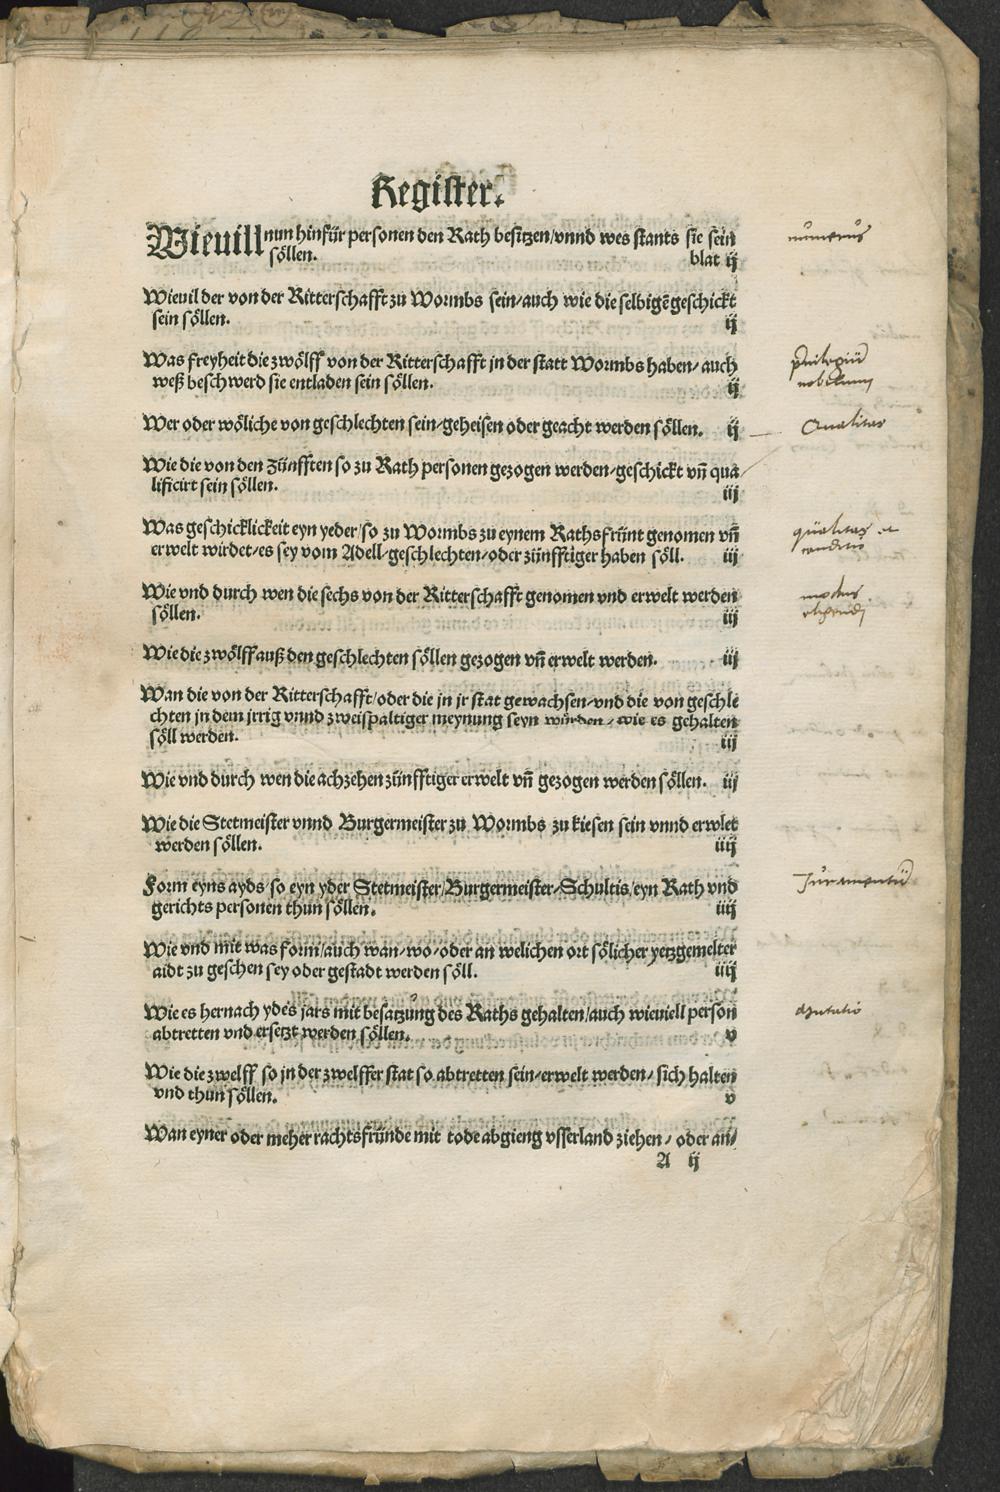 Register.
Wieuill nun hinfür personen den Rath besitzen/vnnd wes stants sie sein
söllen. blat ij
Wieuil der von der Ritterschafft zu Wormbs sein/auch wie die selbigē geschickt
sein söllen. ij
Was freyheit die zwölff von der Ritterschafft jn der statt Wormbs haben/auch
weß beschwerd sie entladen sein söllen. ij
Wer oder wöliche von geschlechten sein/geheisen oder geacht werden söllen. ij
Wie die von den Zünfften so zu Rath personen gezogen werden/geschickt vñ qua
lificirt sein söllen. iij
Was geschicklickeit eyn yeder/so zu Wormbs zu eynem Rathsfründt genomen vñ
erwelt wirdet/es sey vom Adell/geschlechten/oder zünfftiger haben söll. iij
Wie vnd durch wen die sechs von der Ritterschafft genomen vnd erwelt werden
söllen. iij
Wie die zwölff auß den geschlechten söllen gezogen vñ erwelt werden. iij
Wan die von der Ritterschafft/oder die jn jr stat gewachsen/vnd die von geschle
chten jn dem jrrig vnnd zweispaltiger meynung seyn würden/wie es gehalten
söll werden. iij
Wie vnd durch wen die achzehen zünfftiger erwelt vñ gezogen werden söllen. iij
Wie die Stetmeister vnnd Burgermeister zu Wormbs zu kiesen sein vnnd erwlet
werden söllen. iiij
Form eyns ayds/so eyn yder Stetmeister/Burgermeister/Schultis/eyn Rath vnd
gerichts personen thun söllen. iiij
Wie vnd mit was form/auch wan/wo/oder an welichen ort sölicher yetzgemelter
aidt zu geschen sey oder gestadt werden söll. iiij
Wie es hernach ydes jars mit besatzung des Raths gehalten/auch wieuiell person
abtretten vnd ersetzt werden söllen. v
Wie die zwelff so jn der zwelffer stat so abtretten sein/erwelt werden/sich halten
vnd thun söllen. v
Wan eyner oder meher rachtsfründe mit tode abgieng vsserland ziehen/oder an/
A ij
numerus
priuilegiū
nobilium
Qualitas
qualitas et
conditio
modus
eligendi
Juramentū